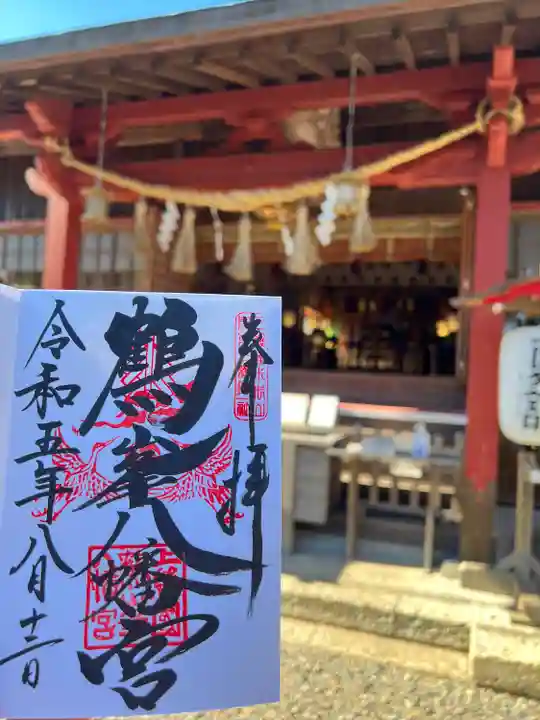 奉拝
鶴峯八幡宮
令和五年八月十二日